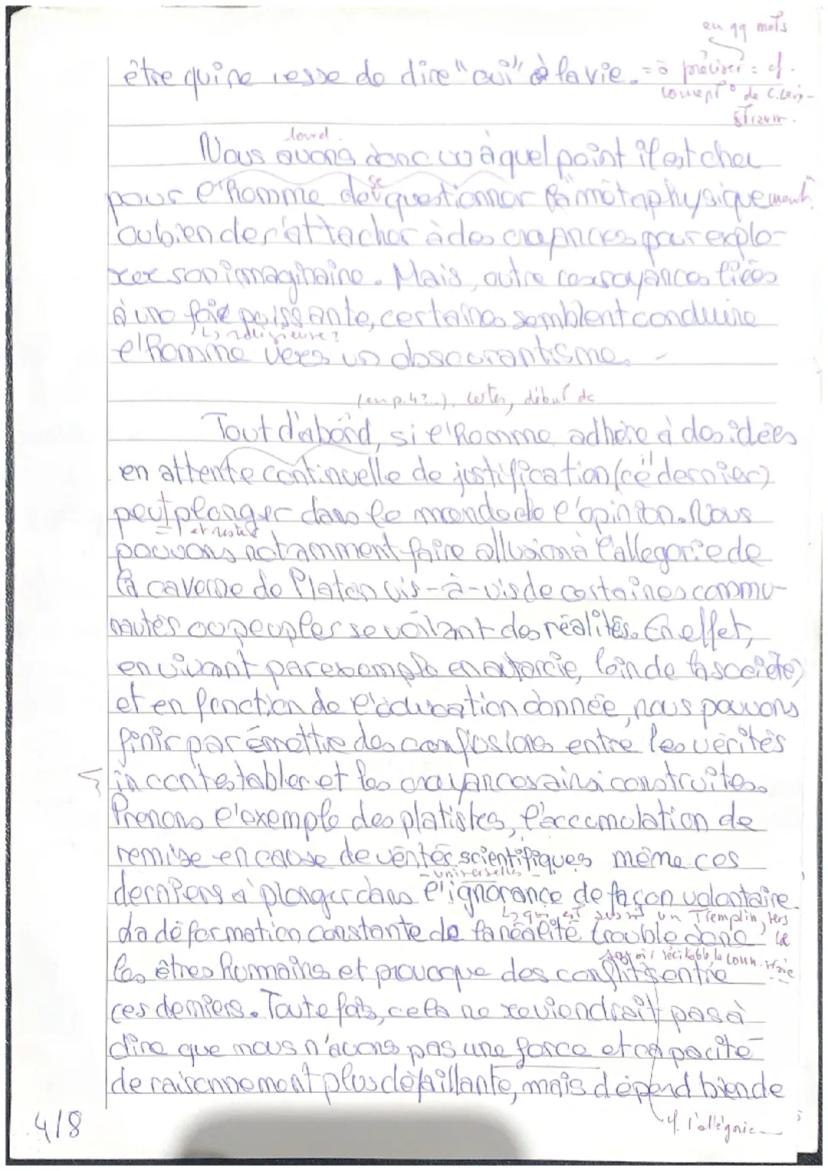 en qq mots
être qui ne cesse de dire "oui" à la vie. = à préciser = cf.
concept° de C. Lévi-
Strauss.
lourd.
Nous avons donc vu à quel point il est cher
pour l'homme de se questionner métaphysiquement
ou bien de s'attacher à des croyances pour explo-
rer son imaginaire. Mais, outre ces croyances liées
à une foi puissante, certaines semblent conduire
↳ religieuse ?
l'homme vers un obscurantisme.
(en p.4?...), certes, début de
Tout d'abord, si l'homme adhère à des idées
en attente continuelle de justification (ce dernier)
peut plonger dans le monde de l'opinion. Nous
et rester
pouvons notamment faire allusion à l'allegorie de
la caverne de Platon vis-à-vis de certaines commu-
nautés ou peuples se voilant des réalités. En effet,
en vivant par exemple en autarcie, loin de la société,
et en fonction de l'éducation donnée, nous pouvons
finir par émettre des confusions entre les vérités
incontestables et les croyances ainsi construites.
Prenons l'exemple des platistes, l'accumulation de
remise en cause de vérités scientifiques mène ces
- universelles -
derniers à plonger dans l'ignorance de façon volontaire.
↳ qui est aussi un tremplin vers
La déformation constante de la réalité trouble donc le
les êtres humains et provoque des conflits entre
ces derniers. Toutefois, cela ne reviendrait pas à
dire que nous n'avons pas une force et capacité
de raisonnement plus défaillante, mais dépend bien de
cf. l'allégorie
4/8